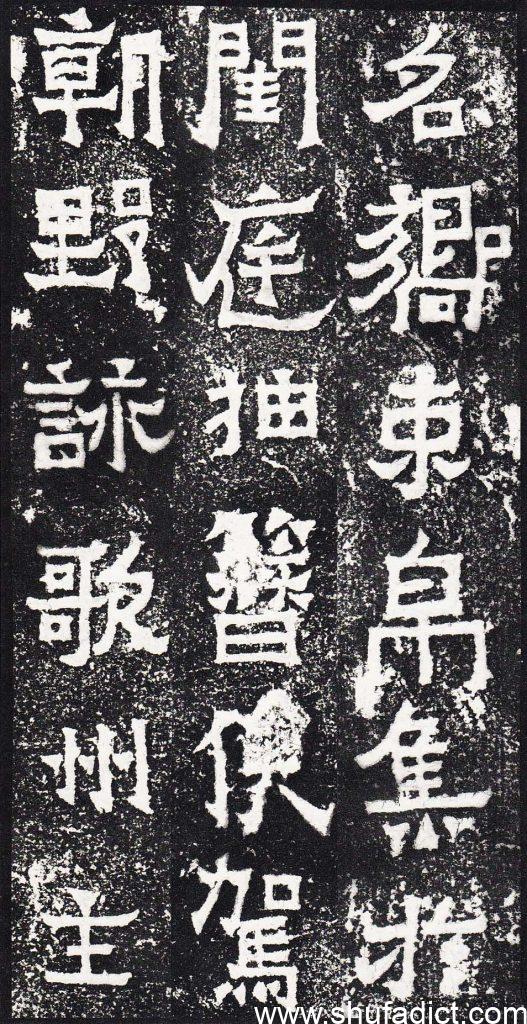 名嚮束帛集扵
閨庭抽簪俟駕
朝野詠歌州主
www.shufadict.com